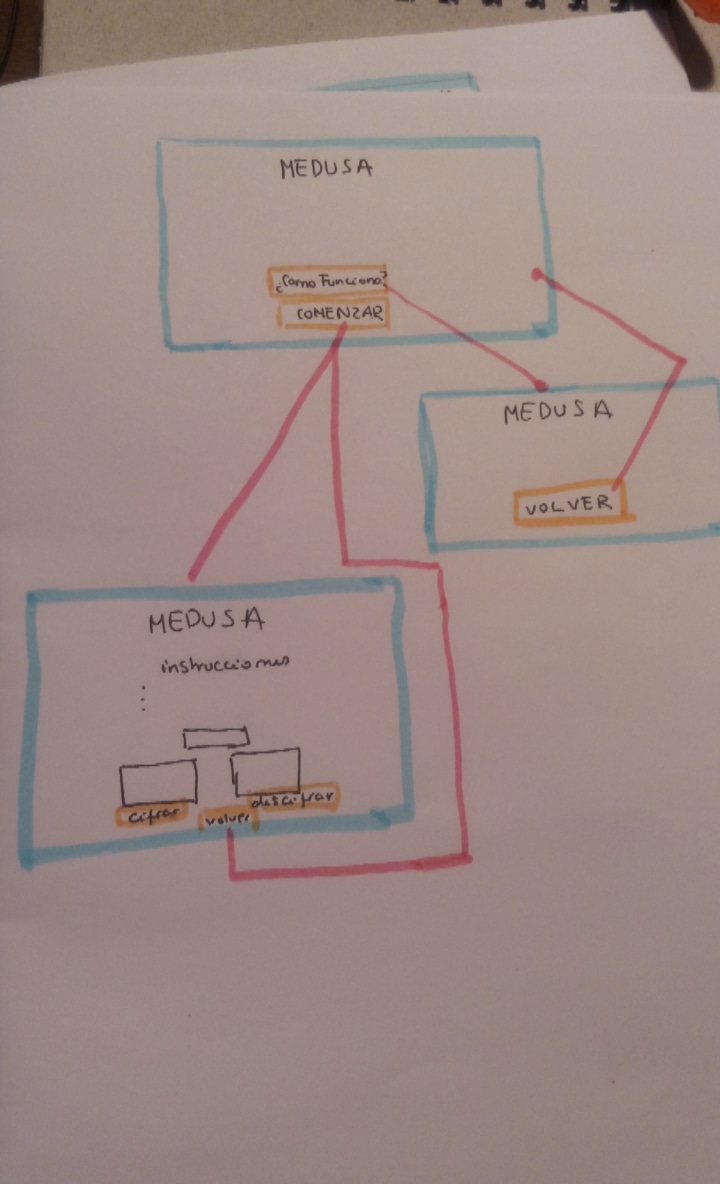 MEDUSA
¿Como Funciona?
COMENZAR
MEDUSA
VOLVER
MEDUSA
instrucciones
cifrar
volver
descifrar